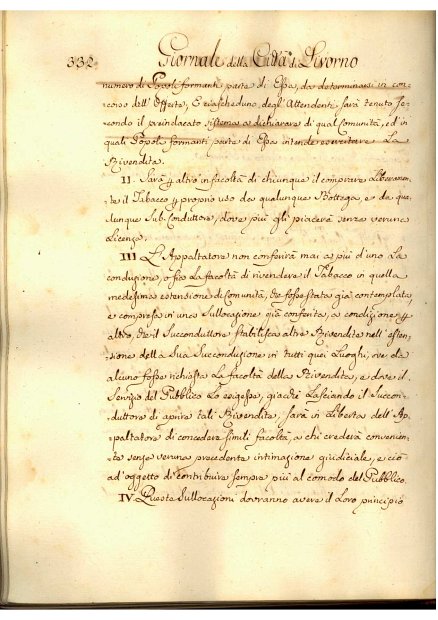 332. Giornale della Città di Livorno
numero di Popoli formanti parte di Essa, da determinarsi in con-
corso dell' Offerte, E ciascheduno degl' Attendenti sarà tenuto se-
condo il preindacato sistema a dichiarare di qual Comunità, ed in
quali Popoli formanti parte di Essa intende esercitare La
Rivendita.
II. Sarà p altro in facoltà di chiunque il comprare Liberamen-
te il Tabacco p proprio uso da qualunque Bottega, e da qua-
lunque Sub-Conduttore, dove più gli piacerà senza veruna
Licenza.
III. L'Appaltatore non conferirà mai a più d'uno La
conduzione, o sia La facoltà di rivendere il Tabacco in quella
medesima estensione di Comunità, che fosse stata già contemplata
e compresa in una Sullocazione già conferita, a condizione p
altro, che il Succonduttore stabilisca altre Rivendite nell' esten-
sione della Sua Succonduzione in tutti quei Luoghi, ove da
alcuno fosse richiesta La facoltà della Rivendita, e dove il
Servizio del Pubblico Lo esigesse, giacchè Lasciando il Succon-
duttore di aprire tali Rivendite, sarà in Libertà dell' Ap-
paltatore di concedere simili facoltà, a chi crederà convenien-
te senza veruna precedente intimazione giudiciale, e ciò
ad' oggetto di contribuire sempre più al comodo del Pubblico.
IV. Queste Sullocazioni dovranno avere il Loro principio